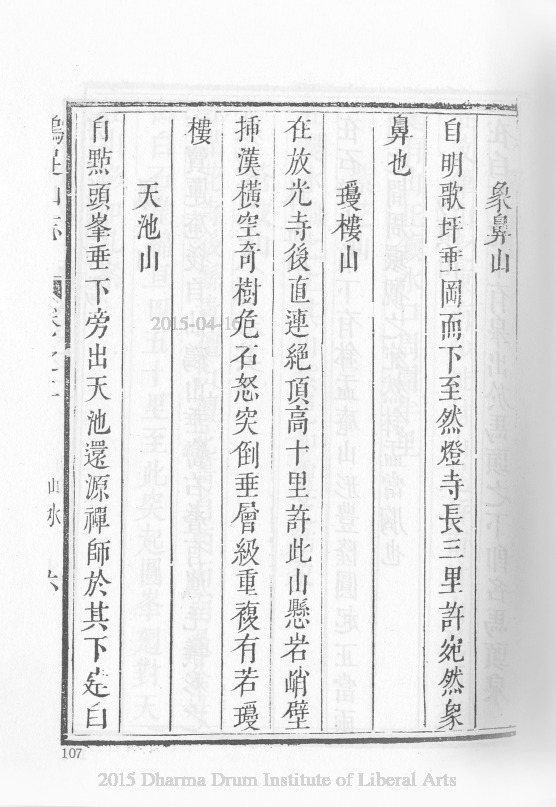 象鼻山
自明歌坪垂岡而下至然燈寺長三里許宛然象
鼻也
瓊樓山
在放光寺後直連絕頂高十里許此山懸岩峭壁
挿漢橫空奇樹危石怒突倒垂層級重複有若瓊
樓
天池山
自㸃頭峯垂下旁出天池還源禪師於其下建白
山水
六
107
2015-04-16
2015 Dharma Drum Institute of Liberal Arts